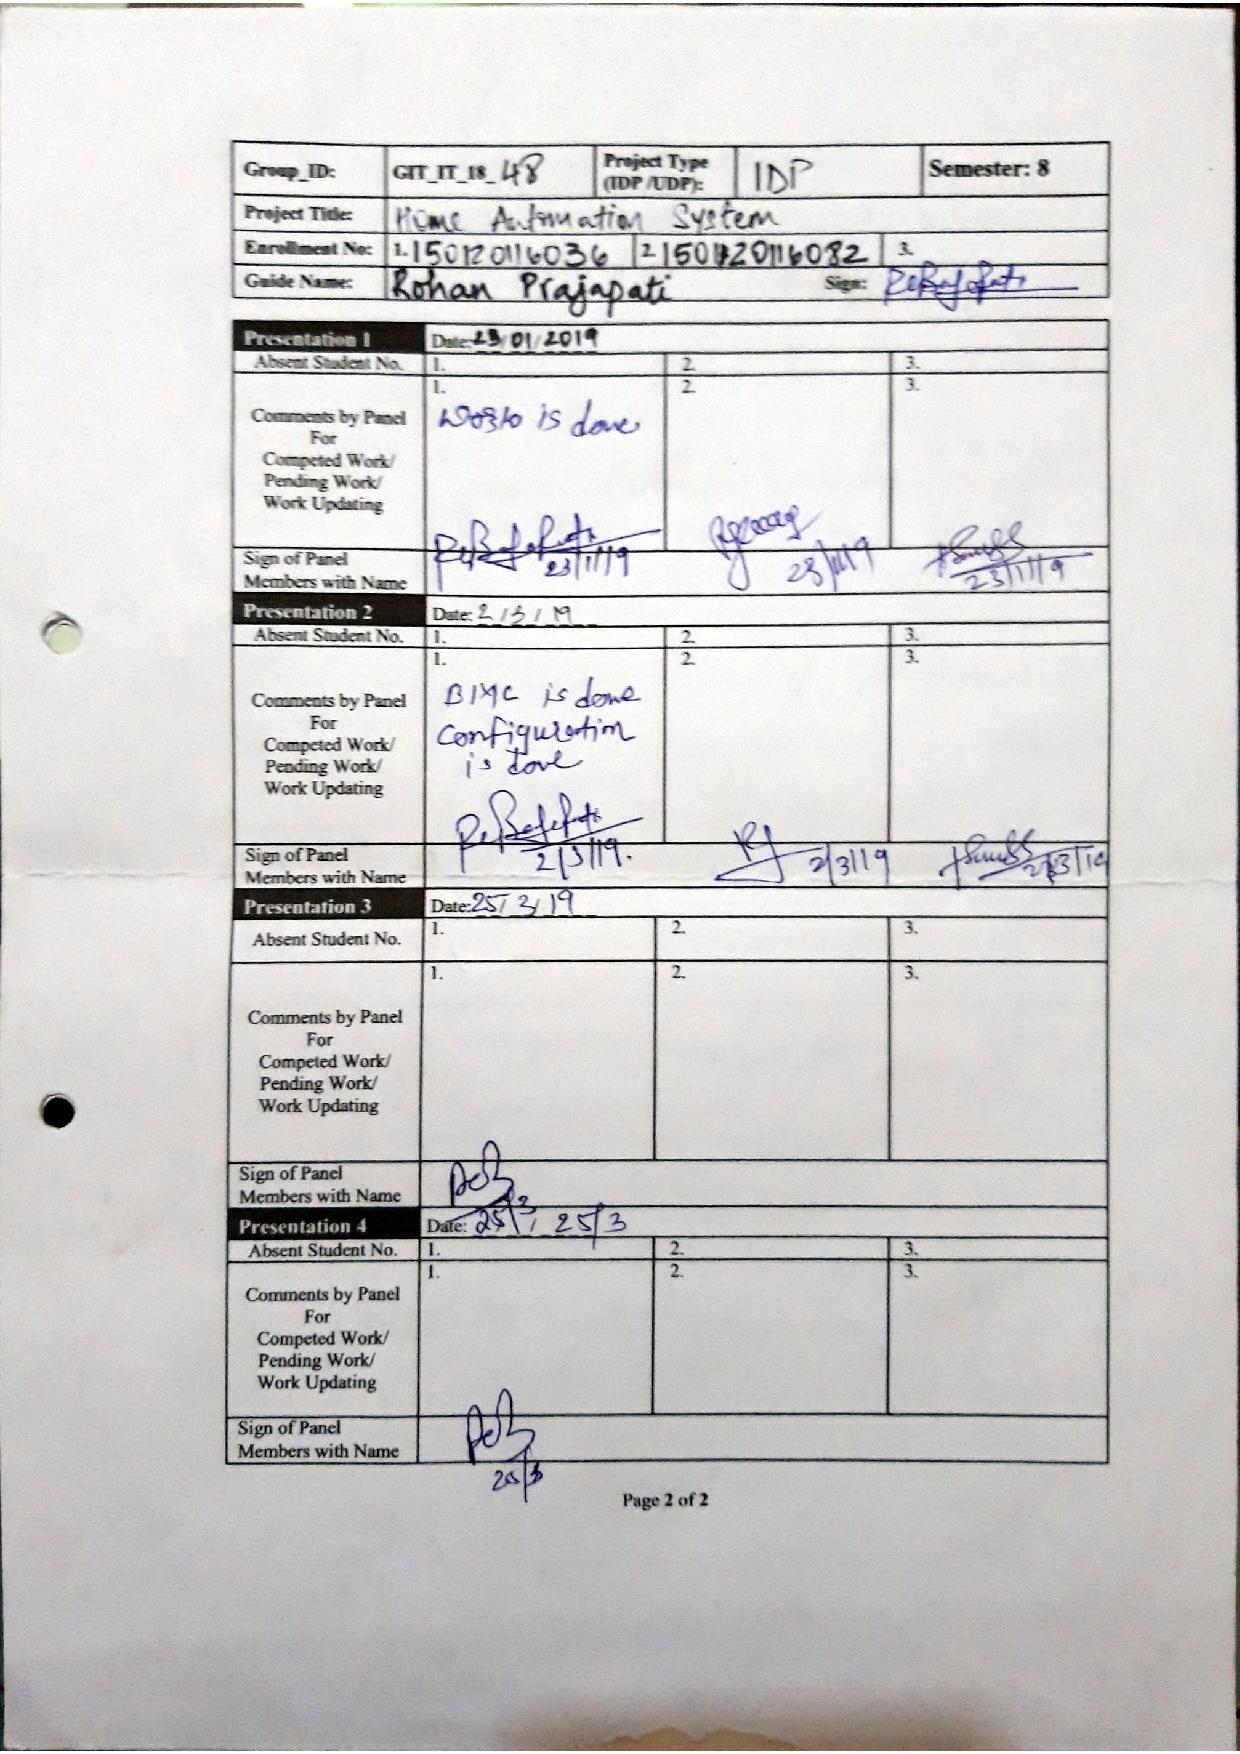 Group_ID: GIT_IT_18_48 Project Type (IDP /UDP): IDP Semester: 8
Project Title: Home Automation System
Enrollment No: 1. 150120116036 2. 150120116082 3.
Guide Name: Rohan Prajapati Sign:
Presentation 1 Date: 23/01/2019
Absent Student No. 1. 2. 3.
1. 2. 3.
Comments by Panel
For
Competed Work/
Pending Work/
Work Updating
work is done
Sign of Panel
Members with Name
23/1/19 23/1/19 23/1/19
Presentation 2 Date: 2/3/19
Absent Student No. 1. 2. 3.
1. 2. 3.
Comments by Panel
For
Competed Work/
Pending Work/
Work Updating
BMC is done
configuration
is done
Sign of Panel
Members with Name
2/3/19. 2/3/19 2/3/19
Presentation 3 Date: 25/3/19
Absent Student No. 1. 2. 3.
1. 2. 3.
Comments by Panel
For
Competed Work/
Pending Work/
Work Updating
Sign of Panel
Members with Name
25/3
Presentation 4 Date: 25/3
Absent Student No. 1. 2. 3.
1. 2. 3.
Comments by Panel
For
Competed Work/
Pending Work/
Work Updating
Sign of Panel
Members with Name
25/3
Page 2 of 2